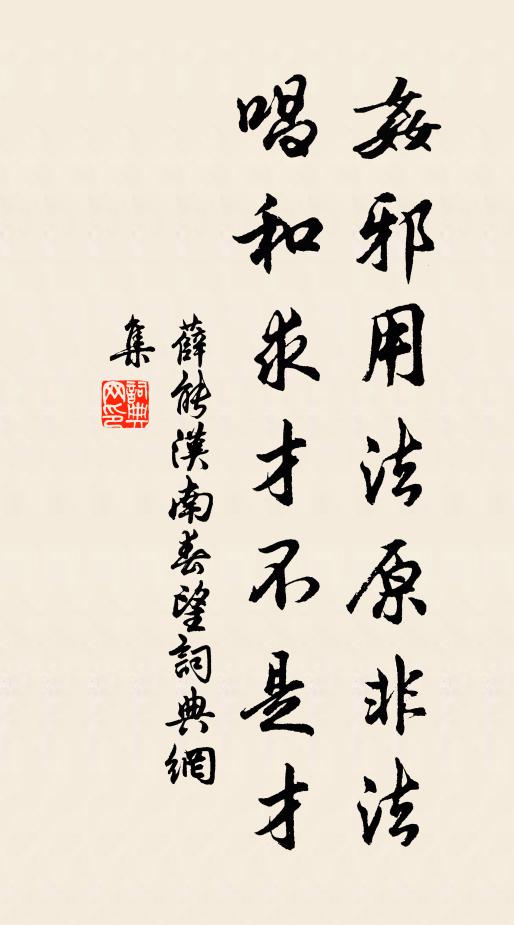 姦邪用法原非法
唱和求才不是才
薛能漢南春望詞典網
集
詞典
网印